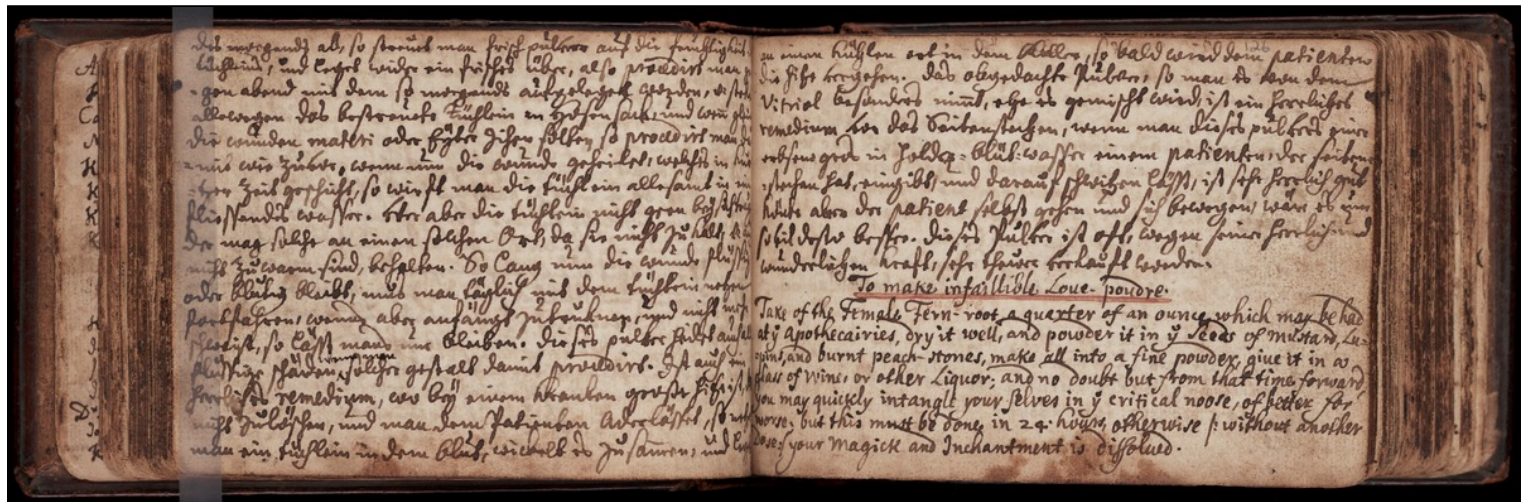 des morgends ab, so streuet man frisch pulver auf die feuchtigkeit
tüchleins, und leget wider ein frisches über, also procedirt man
-gen abend mit dem so morgends aufgeleget worden,
allewegen das bestreuete tüchlein im Hosensack, und wenn
die wunden materi oder Eyter ziehen solten, so procedirt man
-mit wie zuvor, wenn nun die wunde geheilet, welches in
-tzer zeit geschicht, so wirft man die tüchlein allesamt in
fliessendes wasser. Wer aber die tüchlein nicht gern
der mag solche an einen solchen Ort, da sie nicht zu kalt,
nicht zu warm sind, behalten. So lang nun die wunde flüssig
oder blutig bleibt, mus man täglich mit dem tüchlein netzen
fortfahren, wenn aber anfängt zutrucknen, und nicht
ist, so lässt mans nur bleiben. dieses pulver heilet
flüssige schäden, solcher gestalt damit procedirt. Ist auch ein
herrliches remedium, wo bey einem Kranken grosse hitze ist,
nicht zulöschen, und man dem Patienten Aderlässet, so
man ein tüchlein in dem blut, wickelt es zusamen, und
126
an einen kühlen ort in dem Keller, so bald wird dem patienten
die hitze vergehen. Das obgedachte Pulver, so man es von dem
Vitriol besonders nimt, ehe es gemischt wird, ist ein herrliches
remedium vor das Seitenstechen, wenn man dieses pulvers einer
erbsen gros in holder-blüt-wasser einem patienten, der seiten
-stechen hat, eingibt, und darauf schwitzen lässt, ist sehr herrlich gut
könte aber der patient selbst gehen und sich bewegen, wäre es um
so vil desto besser. dieses Pulver ist oft, wegen seiner herrlich und
wunderlichen kraft, sehr theuer verkauft worden.
To make infaillible Love-poudre.
Take of the Female Fern-root a quarter of an ounce, which may be had
at ÿ Apothecairies, dry it well, and powder it in ÿ Seeds of mustard, Lu-
-pins, and burnt peach-stones, make all into a fine powder, give it in a
glass of wine, or other Liquor; and no doubt but from that time forward,
you may quickly intangle your selves in ÿ critical noose, of better for
worse; but this must be done in 24 hours, otherwise /: without another
dose :/ your Magick and Inchantment is dissolued.